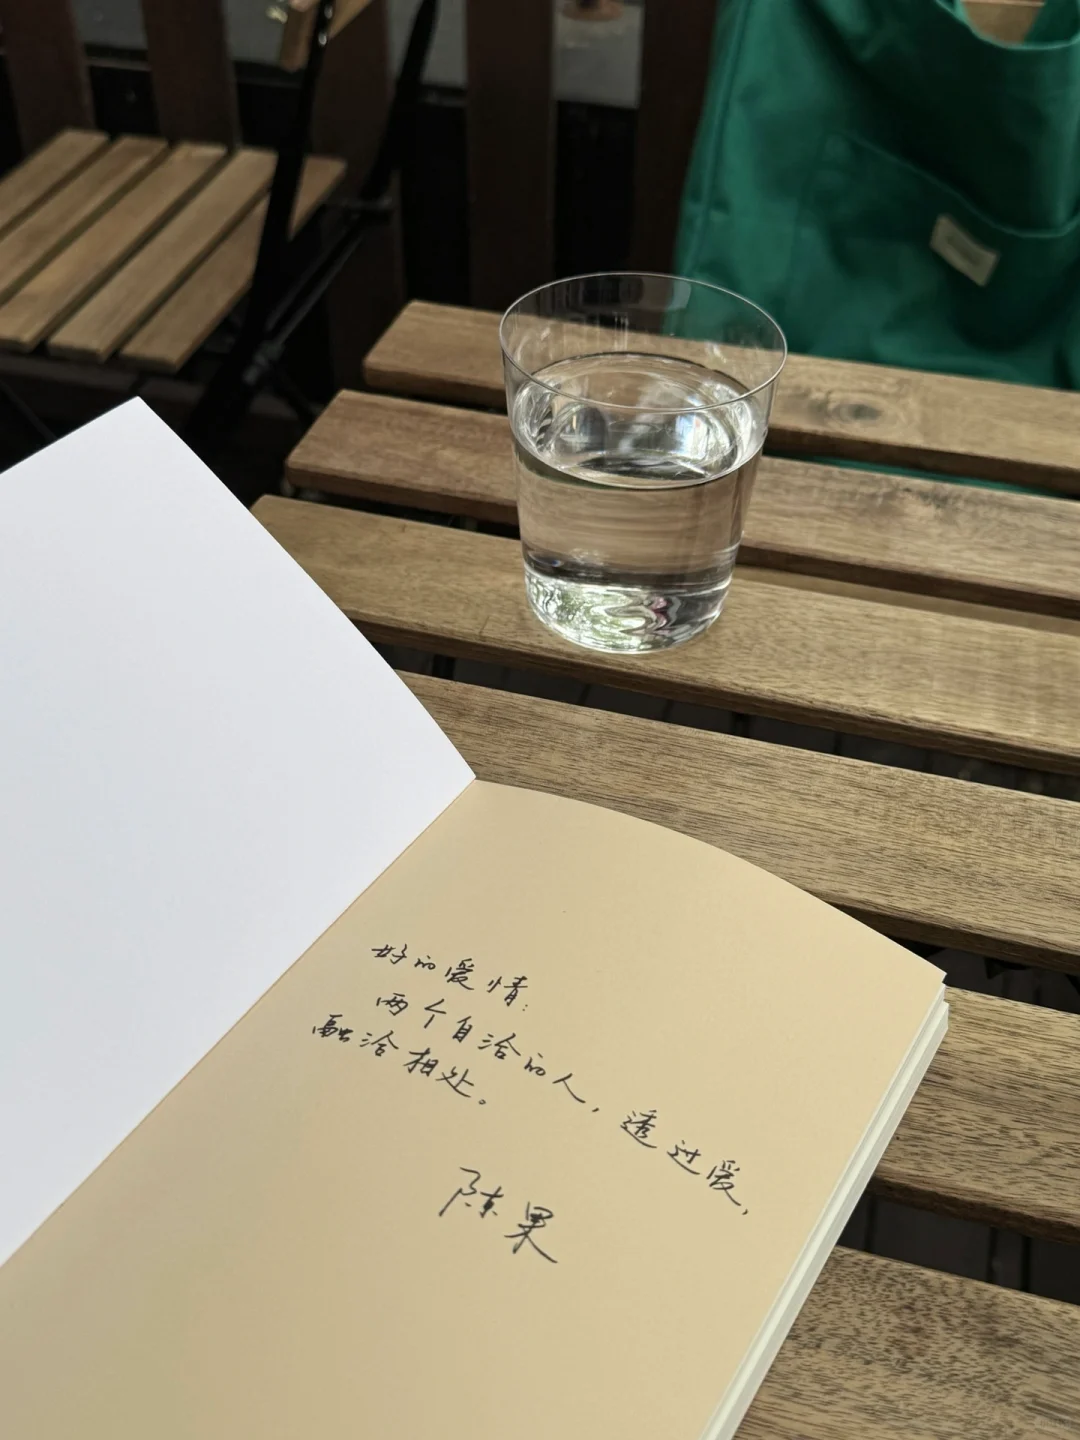 好的爱情：
两个自洽的人，透过爱，
融洽相处。
陈果